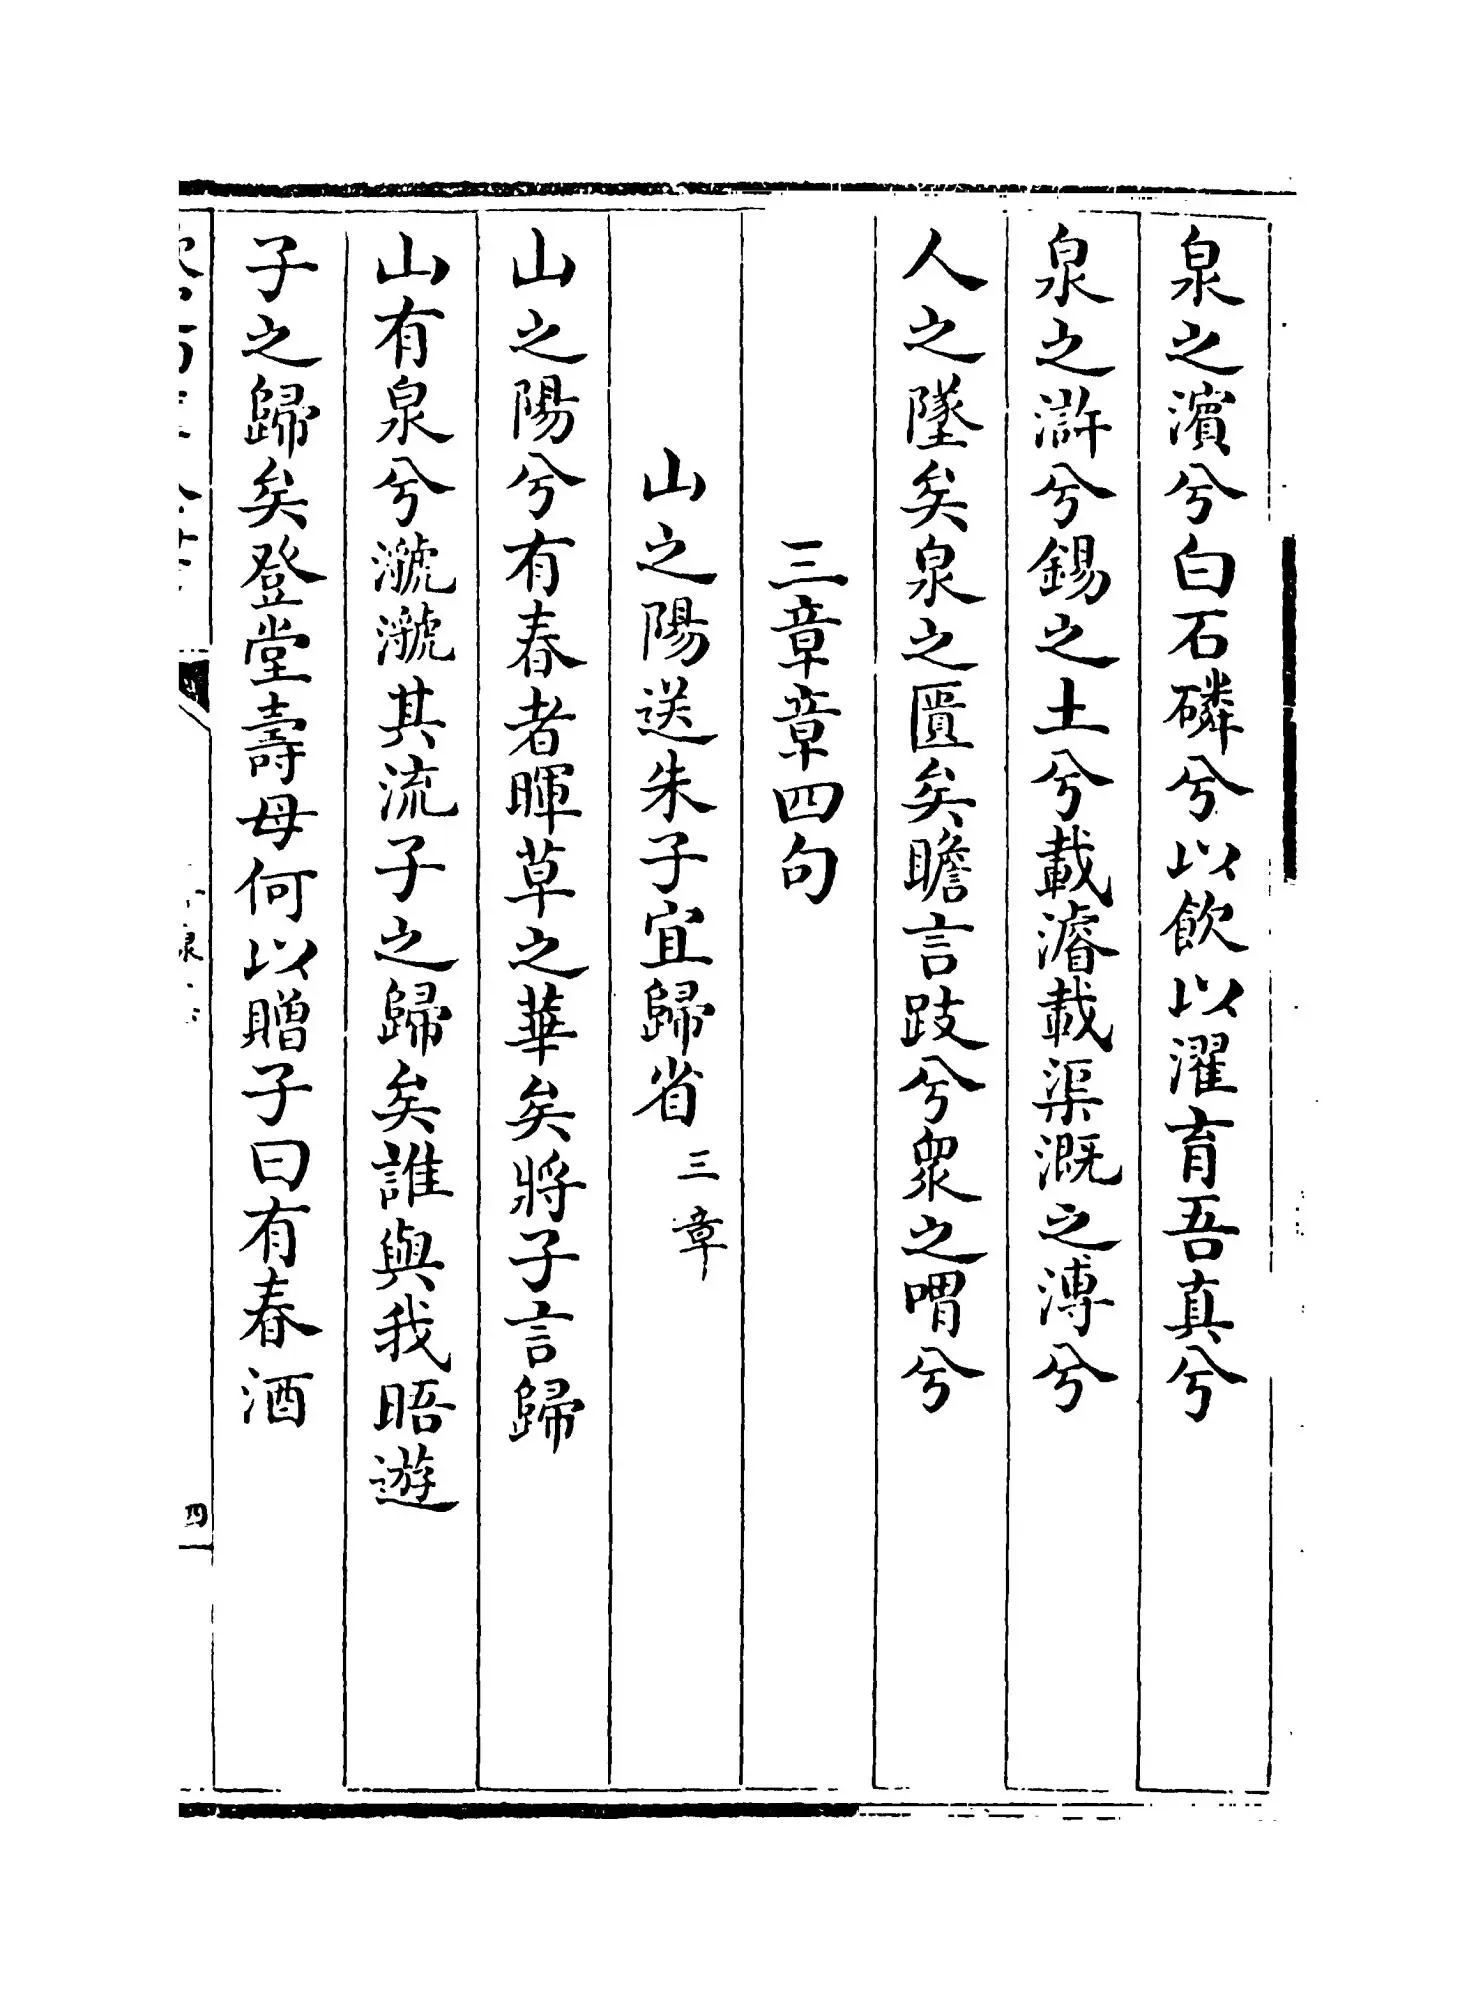 泉之濵兮白石磷兮以飲以濯育吾真兮
泉之滸兮錫之土兮載濬載渠溉之溥兮
人之墜矣泉之匱矣瞻言跂兮衆之喟兮
三章章四句
山之陽送朱子宜歸省三章
山之陽兮有春者暉草之華矣將子言歸
山有泉兮瀌瀌其流子之歸矣誰與我晤遊
子之歸矣登堂壽母何以贈子曰有春酒
四